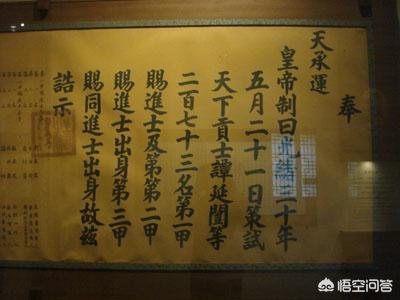 奉
天承運
皇帝制曰光緒三十年
五月二十一日策試
天下貢士譚延闓等
二百七十三名第一甲
賜進士及第第二甲
賜進士出身第三甲
賜同進士出身故茲
誥示
悟空问答